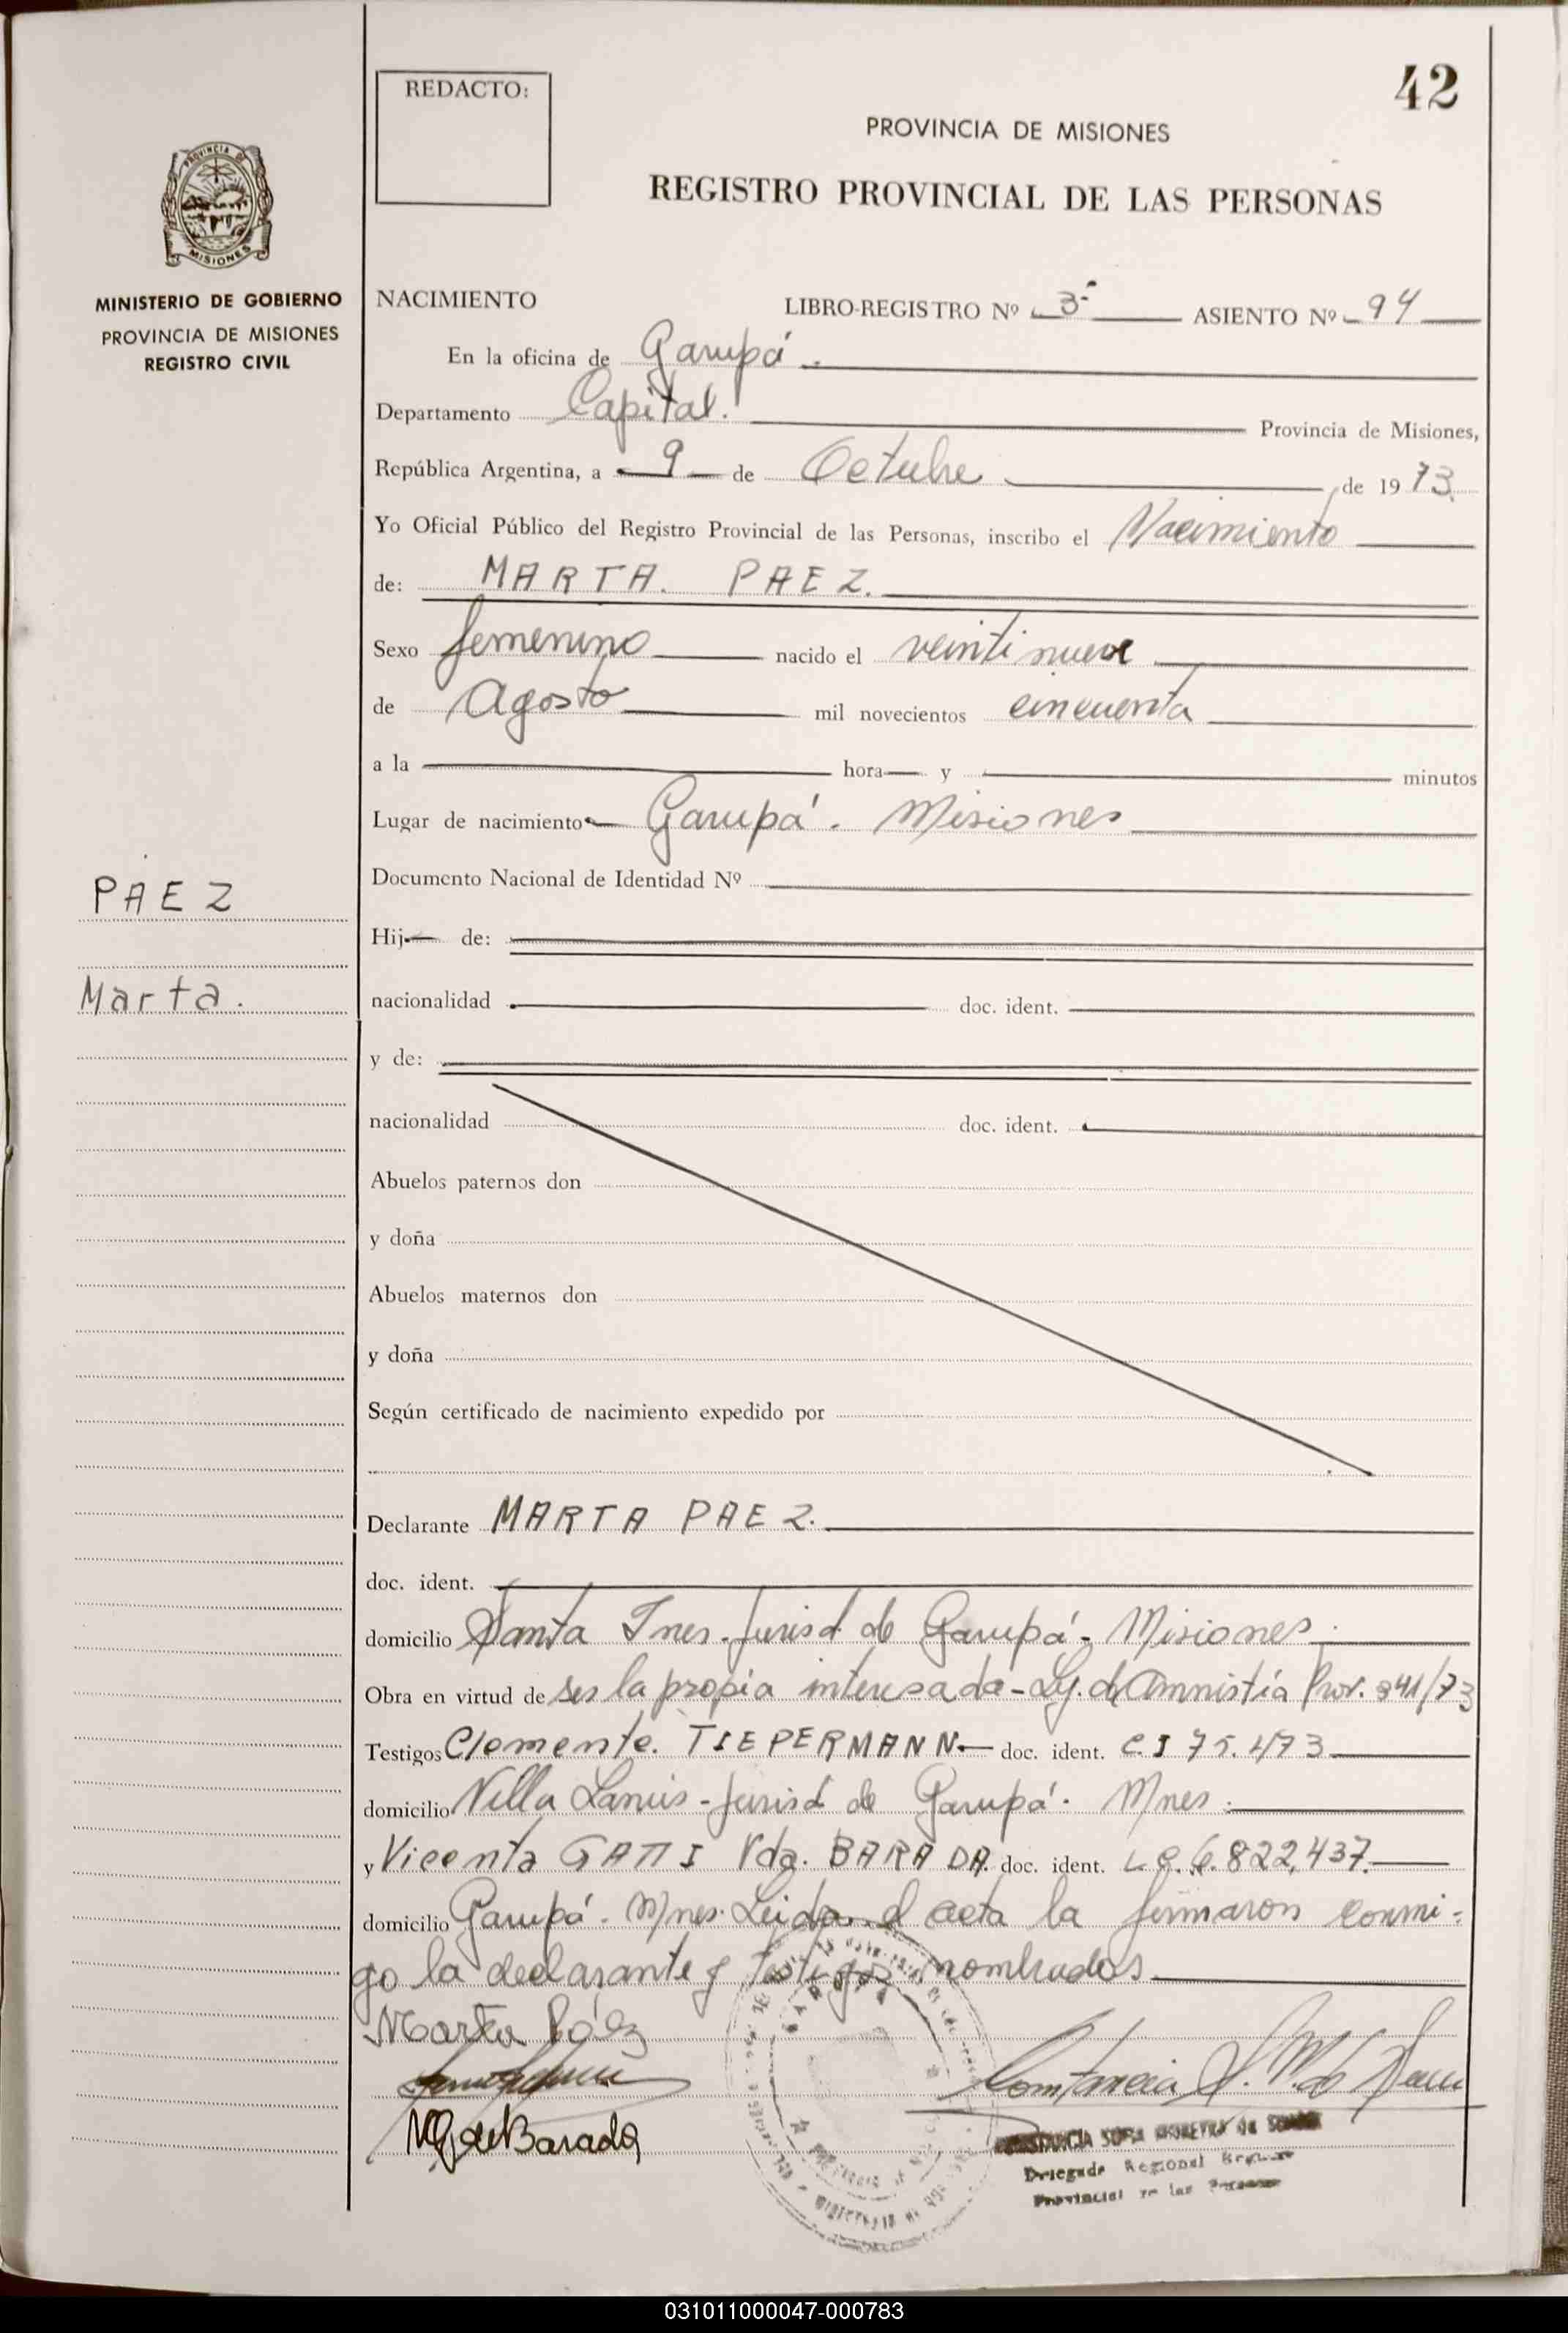 42
REDACTO:
PROVINCIA DE MISIONES
REGISTRO PROVINCIAL DE LAS PERSONAS
PROVINCIA DE
MISIONES
MINISTERIO DE GOBIERNO
PROVINCIA DE MISIONES
REGISTRO CIVIL
NACIMIENTO LIBRO-REGISTRO Nº 3º ASIENTO Nº 94
En la oficina de Garupá.
Departamento Capital. Provincia de Misiones,
República Argentina, a 9 de Octubre de 1973.
Yo Oficial Público del Registro Provincial de las Personas, inscribo el Nacimiento
de: MARTA. PAEZ.
Sexo femenino nacido el veintinueve
de Agosto mil novecientos cincuenta
a la hora y minutos
Lugar de nacimiento Garupá. Misiones
Documento Nacional de Identidad Nº
PAEZ
Hij de:
Marta.
nacionalidad doc. ident.
y de:
nacionalidad doc. ident.
Abuelos paternos don
y doña
Abuelos maternos don
y doña
Según certificado de nacimiento expedido por
Declarante MARTA PAEZ.
doc. ident.
domicilio Santa Ines. Jurisd. de Garupá - Misiones.
Obra en virtud de ser la propia interesada - Ly. de Amnistía Prov. 841/73
Testigos Clemente. TIEPERMANN doc. ident. C.I 75.473
domicilio Villa Lanús - Jurisd de Garupá. Mnes.
y Vicenta GATTI Vda. BARADA. doc. ident. L.C. 6.822,437.
domicilio Garupá. Mnes. Leida el acta la firmaron conmi-
go la declarante y testigos nombrados
Marta Páez
Constancia S. M. de
VG de Barada
CONSTANCIA SOFIA MOREYRA de
Delegada Regional
Provincial de las Personas
031011000047-000783